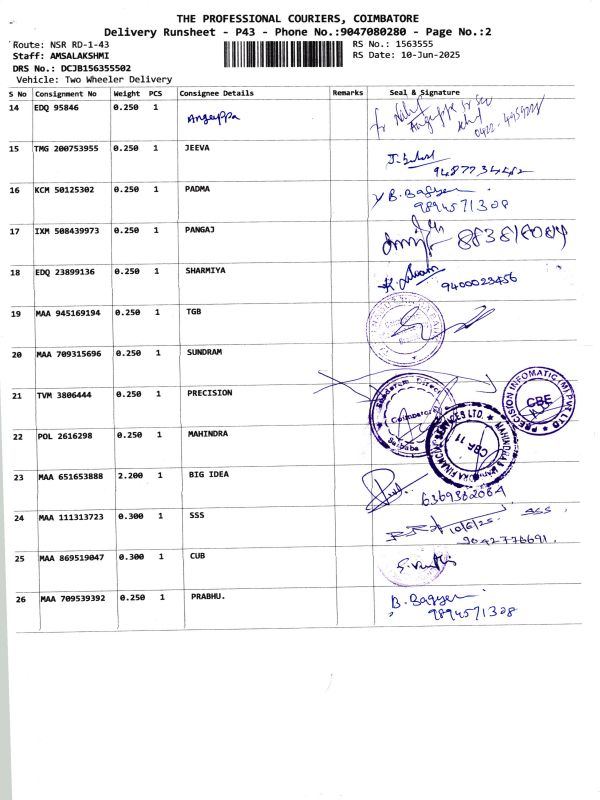 THE PROFESSIONAL COURIERS, COIMBATORE
Delivery Runsheet - P43 - Phone No.:9047080280 - Page No.:2
Route: NSR RD-1-43 RS No.: 1563555
Staff: AMSALAKSHMI RS Date: 10-Jun-2025
DRS No.: DCJB156355502
Vehicle: Two Wheeler Delivery
S No Consignment No Weight PCS Consignee Details Remarks Seal & Signature
14 EDQ 95846 0.250 1 Angeuppa
15 TMG 200753955 0.250 1 JEEVA
9487734462
16 KCM 50125302 0.250 1 PADMA B. Bagyam
9894571308
17 IXM 508439973 0.250 1 PANGAJ
18 EDQ 23899136 0.250 1 SHARMIYA 9400023456
19 MAA 945169194 0.250 1 TGB
20 MAA 709315696 0.250 1 SUNDRAM
21 TVM 3806444 0.250 1 PRECISION PRECISION INFOMATIC (M) PVT LTD CBE
Coimbatore
Saibaba
22 POL 2616298 0.250 1 MAHINDRA MAHINDRA & MAHINDRA FINANCIAL SERVICES LTD. CBA 11
23 MAA 651653888 2.200 1 BIG IDEA 6369362064
24 MAA 111313723 0.300 1 SSS 10/6/25
9042776691.
25 MAA 869519047 0.300 1 CUB
26 MAA 709539392 0.250 1 PRABHU. B. Bagyam
9894571308